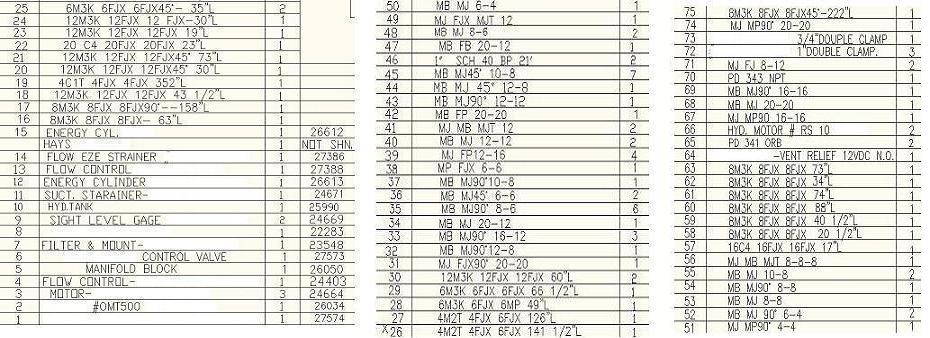 25 6M3K 6FJX 6FJX45°- 35"L 2
24 12M3K 12FJX 12 FJX-30"L 1
23 12M3K 12FJX 12FJX 19"L 1
22 20 C4 20FJX 20FJX 23"L 1
21 12M3K 12FJX 12FJX45° 73"L 1
20 12M3K 12FJX 12FJX45° 30"L 1
19 4C1T 4FJX 4FJX 352"L 1
18 12M3K 12FJX 12FJX 43 1/2"L 1
17 8M3K 8FJX 8FJX90°--158"L 1
16 8M3K 8FJX 8FJX- 63"L 1
15 ENERGY CYL. 1 26612
HAYS 1 NOT SHN.
14 FLOW EZE STRAINER 1 27386
13 FLOW CONTROL 1 27388
12 ENERGY CYLINDER 1 26613
11 SUCT. STARAINER- 1 24671
10 HYD.TANK 1 25990
9 SIGHT LEVEL GAGE 2 24669
8 1 22283
7 FILTER & MOUNT- 1 23548
6 CONTROL VALVE 1 27573
5 MANIFOLD BLOCK 1 26050
4 FLOW CONTROL- 1 24403
3 MOTOR- 3 24664
2 #OMT500 1 26034
1 1 27574
50 MB MJ 6-4 1
49 MJ FJX MJT 12 1
48 MB MJ 8-6 2
47 MB FB 20-12 1
46 1" SCH 40 BP 21' 2
45 MB MJ45° 10-8 7
44 MB MJ 45° 12-8 1
43 MB MJ90° 12-12 1
42 MB FP 20-20 1
41 MJ MB MJT 12 2
40 MB MJ 12-12 2
39 MJ FP12-16 4
38 MP FJX 6-6 1
37 MB MJ90°10-8 1
36 MB MJ45° 6-6 2
35 MB MJ90° 8-6 6
34 MB MJ 20-12 1
33 MB MJ90° 16-12 3
32 MB MJ90°12-8 1
31 MJ FJX90° 20-20 1
30 12M3K 12FJX 12FJX 60"L 2
29 6M3K 6FJX 6FJX 66 1/2"L 1
28 6M3K 6FJX 6MP 49"L 1
27 4M2T 4FJX 6FJX 126"L 1
X26 4M2T 4FJX 6FJX 141 1/2"L 1
75 8M3K 8FJX 8FJX45°-222"L 1
74 MJ MP90° 20-20 1
73 3/4"DOUPLE CLAMP 1
72 1"DOUBLE CLAMP. 3
71 MJ FJ 8-12 2
70 PD 343 NPT 1
69 MB MJ90° 16-16 1
68 MB MJ 20-20 1
67 MJ MP90 16-16 1
66 HYD. MOTOR # RS 10 2
65 PD 341 ORB 2
64 -VENT RELIEF 12VDC N.O. 1
63 8M3K 8FJX 8FJX 73"L 1
62 8M3K 8FJX 8FJX 34"L 1
61 8M3K 8FJX 8FJX 74"L 1
60 8M3K 8FJX 8FJX 88"L 1
59 8M3K 8FJX 8FJX 40 1/2"L 1
58 8M3K 8FJX 8FJX 20 1/2"L 1
57 16C4 16FJX 16FJX 17"L 1
56 MJ MB MJT 8-8-8 1
55 MB MJ 10-8 2
54 MB MJ90° 8-8 1
53 MB MJ 8-8 1
52 MB MJ 90° 6-4 2
51 MJ MP90° 4-4 1